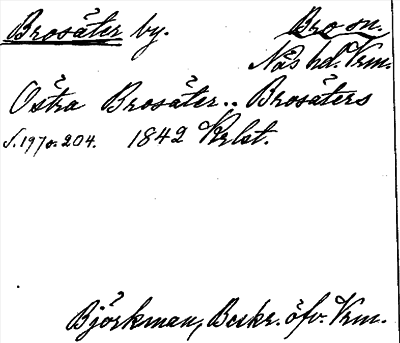 Brosäter by. Bro sn.
Näs hd. Vrm.
Östra Brosäter.. Brosäters
s. 197 o. 204. 1842 Krlst.
Björkman, Beskr. öfv. Vrm.